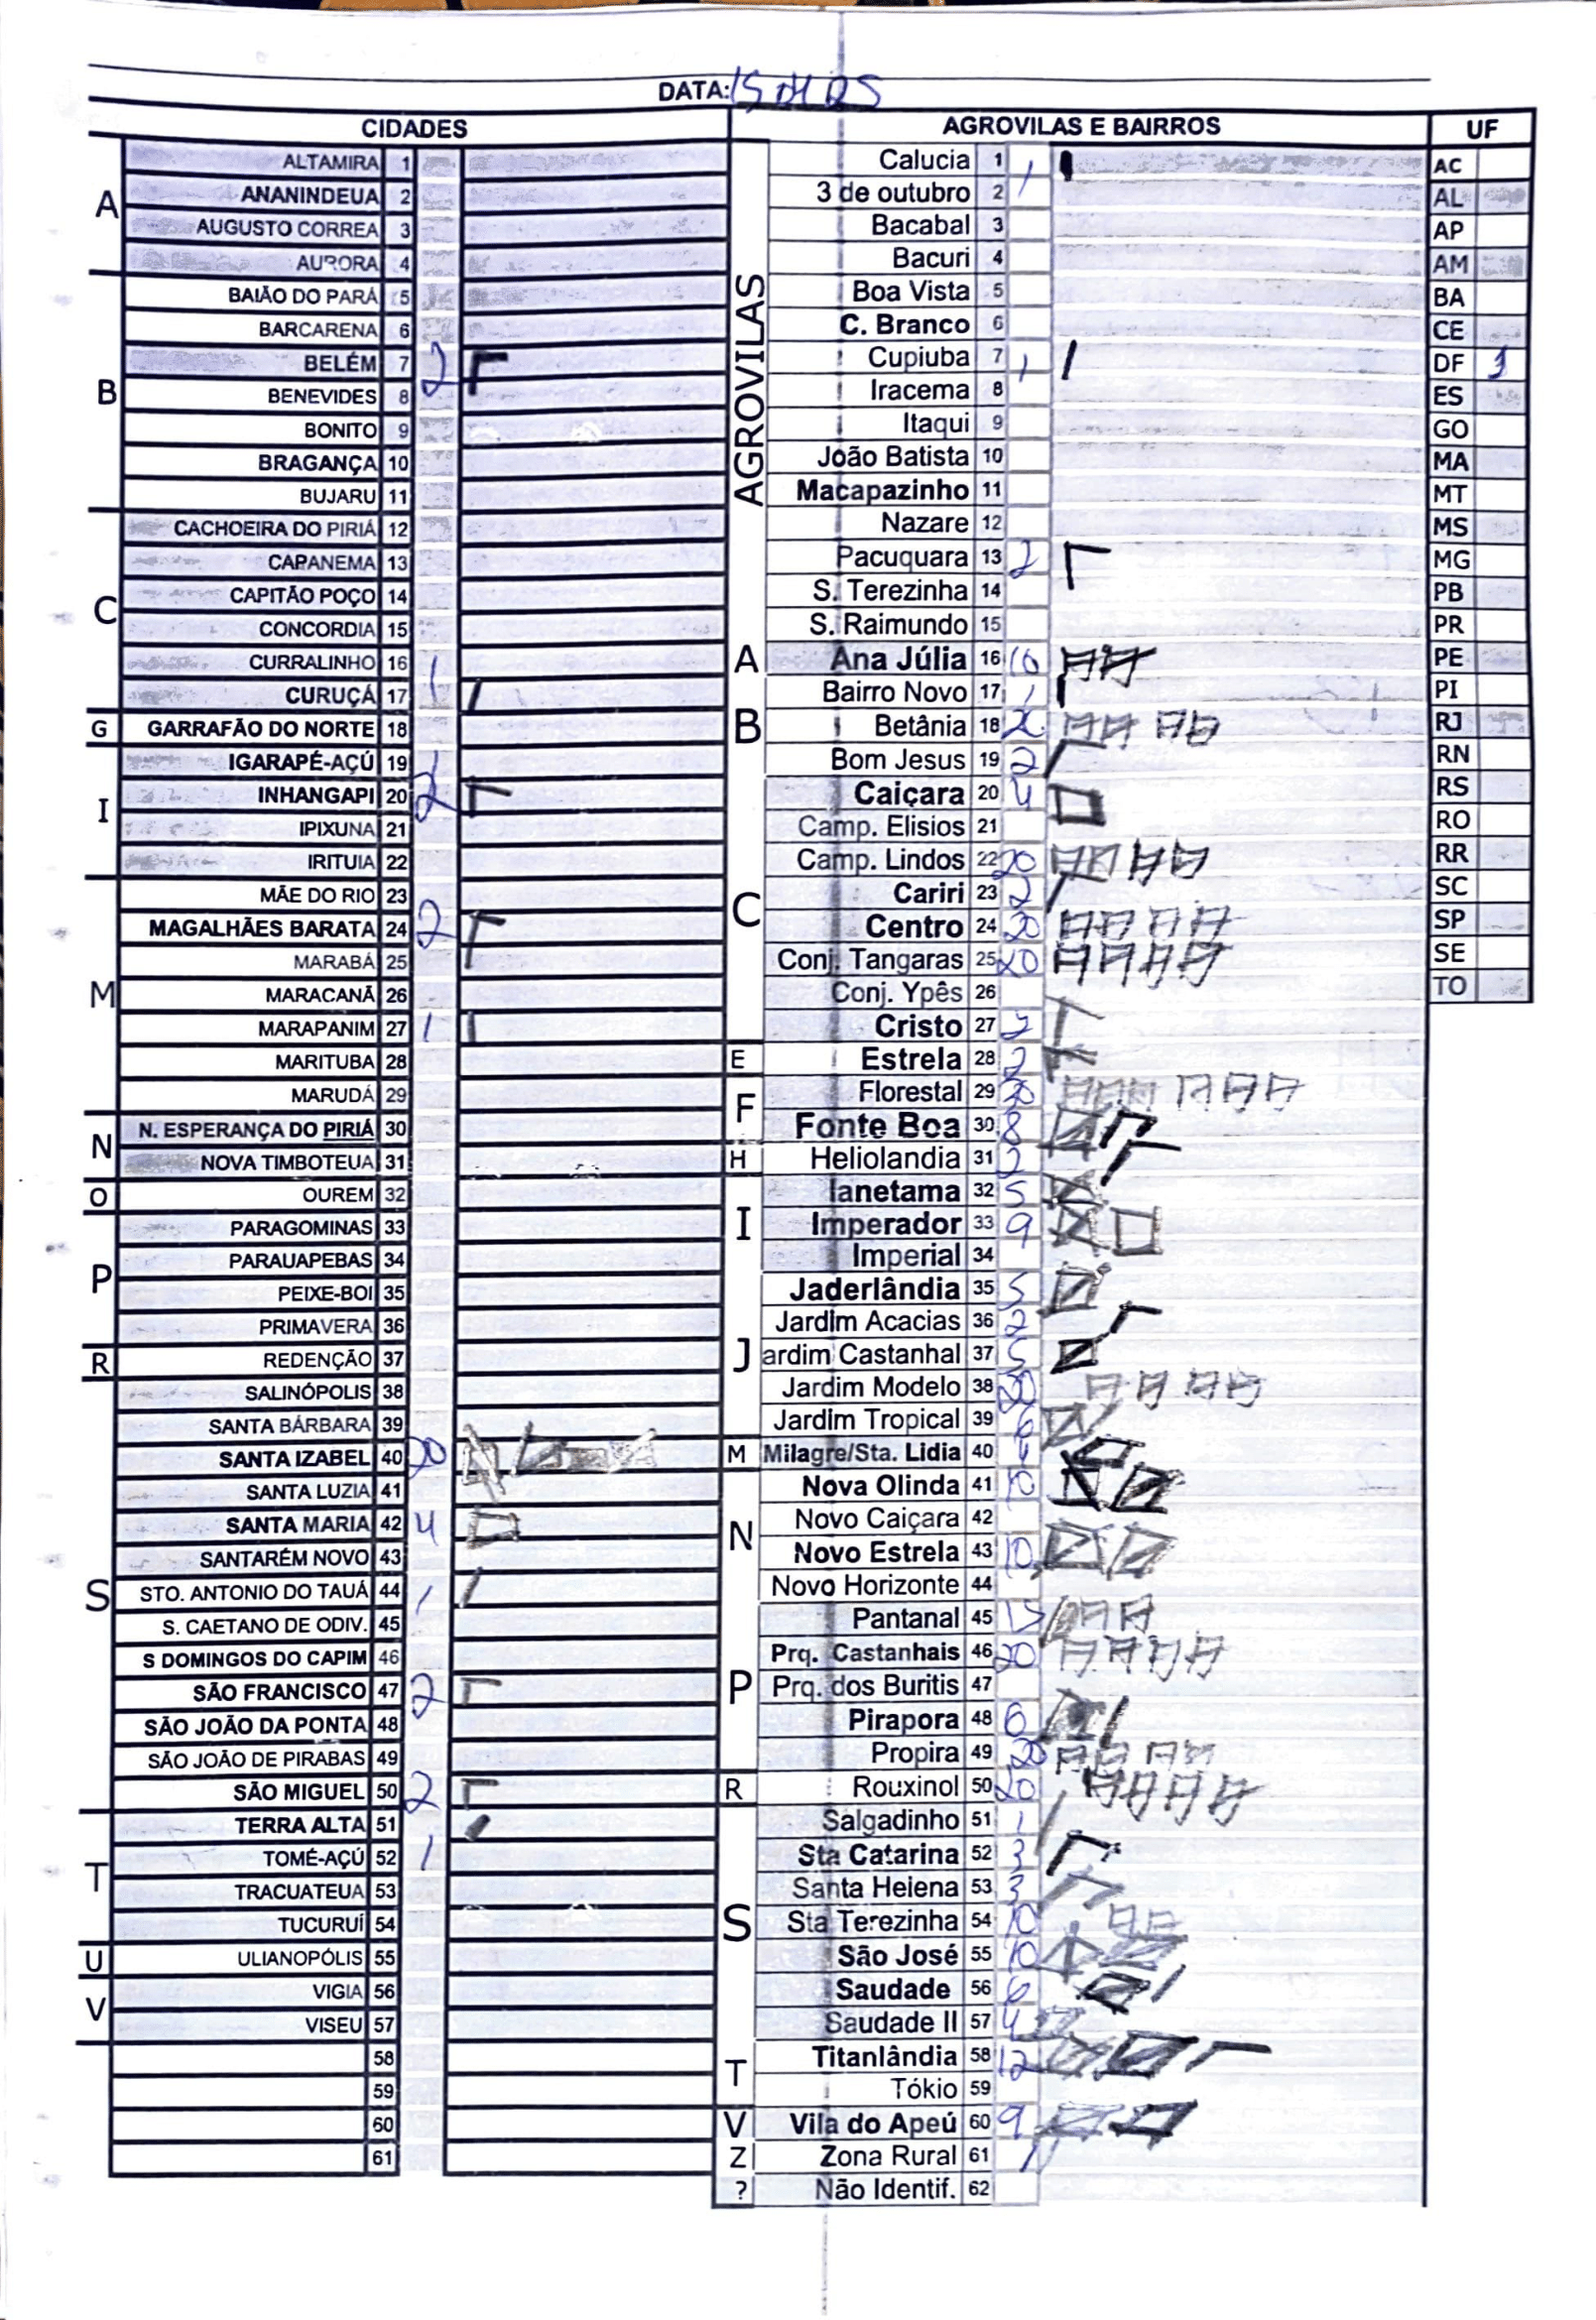 DATA:
CIDADES
A
ALTAMIRA 1
ANANINDEUA 2
AUGUSTO CORREA 3
AURORA 4
B
BAIÃO DO PARÁ 5
BARCARENA 6
BELÉM 7 2
BENEVIDES 8
BONITO 9
BRAGANÇA 10
BUJARU 11
C
CACHOEIRA DO PIRIÁ 12
CAPANEMA 13
CAPITÃO POÇO 14
CONCORDIA 15
CURRALINHO 16
CURUÇÁ 17 1
G
GARRAFÃO DO NORTE 18
I
IGARAPÉ-AÇÚ 19
INHANGAPI 20 2
IPIXUNA 21
IRITUIA 22
M
MÃE DO RIO 23
MAGALHÃES BARATA 24 2
MARABÁ 25
MARACANÃ 26
MARAPANIM 27 1
MARITUBA 28
MARUDÁ 29
N
N. ESPERANÇA DO PIRIÁ 30
NOVA TIMBOTEUA 31
O
OUREM 32
P
PARAGOMINAS 33
PARAUAPEBAS 34
PEIXE-BOI 35
PRIMAVERA 36
R
REDENÇÃO 37
S
SALINÓPOLIS 38
SANTA BÁRBARA 39
SANTA IZABEL 40 20
SANTA LUZIA 41
SANTA MARIA 42 4
SANTARÉM NOVO 43
STO. ANTONIO DO TAUÁ 44 1
S. CAETANO DE ODIV. 45
S DOMINGOS DO CAPIM 46
SÃO FRANCISCO 47 2
SÃO JOÃO DA PONTA 48
SÃO JOÃO DE PIRABAS 49
SÃO MIGUEL 50 2
T
TERRA ALTA 51
TOMÉ-AÇÚ 52 1
TRACUATEUA 53
TUCURUÍ 54
U
ULIANOPÓLIS 55
V
VIGIA 56
VISEU 57
58
59
60
61
AGROVILAS E BAIRROS
AGROVILAS
Calucia 1 1
3 de outubro 2
Bacabal 3
Bacuri 4
Boa Vista 5
C. Branco 6
Cupiuba 7 1
Iracema 8
Itaqui 9
João Batista 10
Macapazinho 11
Nazare 12
Pacuquara 13 2
S. Terezinha 14
S. Raimundo 15
A
Ana Júlia 16 10
B
Bairro Novo 17 1
Betânia 18
Bom Jesus 19 2
C
Caiçara 20 4
Camp. Elisios 21
Camp. Lindos 22 20
Cariri 23 2
Centro 24 20
Conj. Tangaras 25 20
Conj. Ypês 26
Cristo 27 2
E
Estrela 28 2
F
Florestal 29
Fonte Boa 30 8
H
Heliolandia 31 2
I
Ianetama 32 5
Imperador 33 9
Imperial 34
J
Jaderlândia 35 5
Jardim Acacias 36 2
ardim Castanhal 37 5
Jardim Modelo 38 20
Jardim Tropical 39 6
M
Milagre/Sta. Lidia 40 4
N
Nova Olinda 41 10
Novo Caiçara 42
Novo Estrela 43 10
Novo Horizonte 44
P
Pantanal 45 15
Prq. Castanhais 46 20
Prq. dos Buritis 47
Pirapora 48 6
Propira 49 20
R
Rouxinol 50 20
S
Salgadinho 51 1
Sta Catarina 52 3
Santa Helena 53 3
Sta Terezinha 54 10
São José 55 10
Saudade 56 6
Saudade II 57 4
T
Titanlândia 58 12
Tókio 59
V
Vila do Apeú 60 9
Z
Zona Rural 61
?
Não Identif. 62
UF
AC
AL
AP
AM
BA
CE
DF
ES
GO
MA
MT
MS
MG
PB
PR
PE
PI
RJ
RN
RS
RO
RR
SC
SP
SE
TO